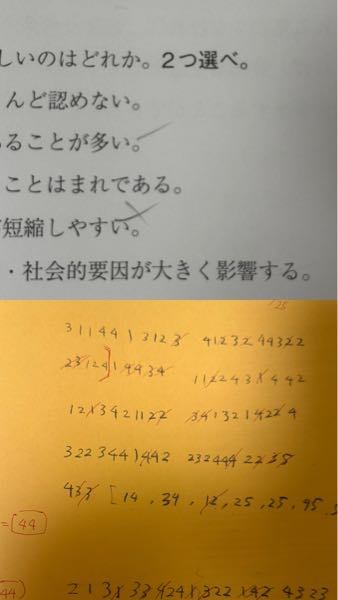 しいのはどれか。2つ選べ。
んど認めない。
ることが多い。
ことはまれである。
短縮しやすい。
・社会的要因が大きく影響する。
/25
3 1 1 4 4 1 3 1 2 3 4 1 2 3 2 4 4 3 2 2
2 3 1 2 4 1 4 4 3 4 1 1 2 2 4 3 1 4 4 2
1 2 1 3 4 2 1 1 2 2 3 4 1 3 2 1 4 2 2 4
3 2 2 3 4 4 1 4 4 2 2 3 2 4 4 4 2 2 3 5
4 3 3 [ 14 , 34 , 12 , 25 , 25 , 45 ,
= 44
44)
2 1 3 3 3 4 2 4 3 2 2 4 2 4 3 2 3